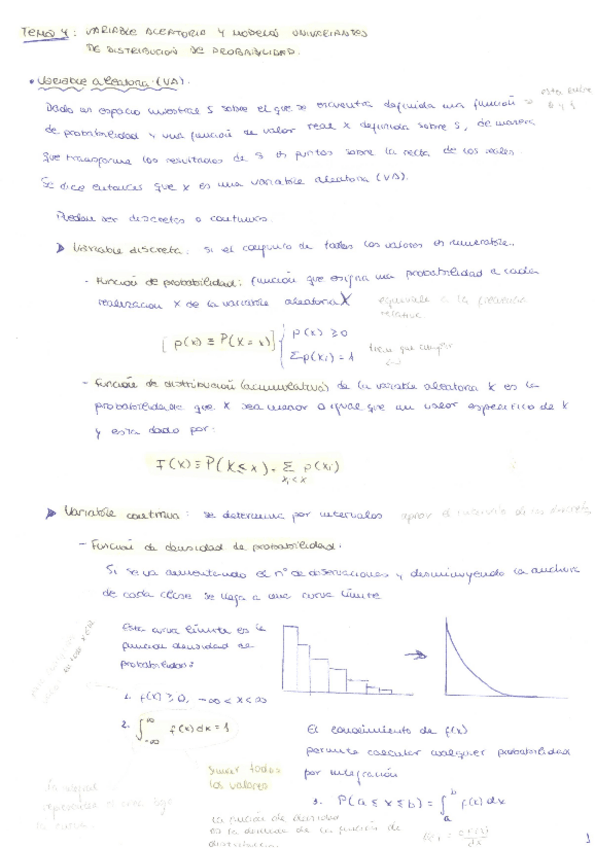 TEMA 4: VARIABLE ALEATORIA Y MODELOS UNIVARIANTES
DE DISTRIBUCIÓN DE PROBABILIDAD.
• Variable aleatoria: (VA).
Dado un espacio muestral S sobre el que se encuentra definida una función → esta entre
0 y 1
de probabilidad y una función de valor real X definida sobre S, de manera
que transforma los resultados de S en puntos sobre la recta de los reales.
Se dice entonces que X es una variable aleatoria (VA).
Pueden ser discretas o continuas.
Variable discreta: si el conjunto de todos los valores es numerable.
- Función de probabilidad: función que asigna una probabilidad a cada
realización x de la variable aleatoria X equivale a la frecuencia
relativa.
[p(x) ≡ P(X = x)] { p(x) ≥ 0
Σp(xi) = 1 tiene que cumplir
- Función de distribución (acumulativa) de la variable aleatoria X es la
probabilidad de que X sea menor o igual que un valor específico de X
y esta dado por:
F(x) ≡ P(X ≤ x) = Σ p(xi)
xi < x
Variable continua: se determina por intervalos
- Función de densidad de probabilidad:
Si se va aumentando el nº de observaciones y disminuyendo la anchura
de cada clase se llega a una curva límite
Esta curva límite es la
función densidad de
probabilidad:
1. f(x) ≥ 0, -∞ < x < ∞
2. ∫ f(x) dx = 1
∞
-∞
El conocimiento de f(x)
permite calcular cualquier probabilidad
por integración
3. P(a ≤ x ≤ b) = ∫ f(x) dx
b
a
Sumar todos
los valores
La integral
representa el área bajo
la curva.
La función de densidad
es la derivada de la función de
distribución.
1